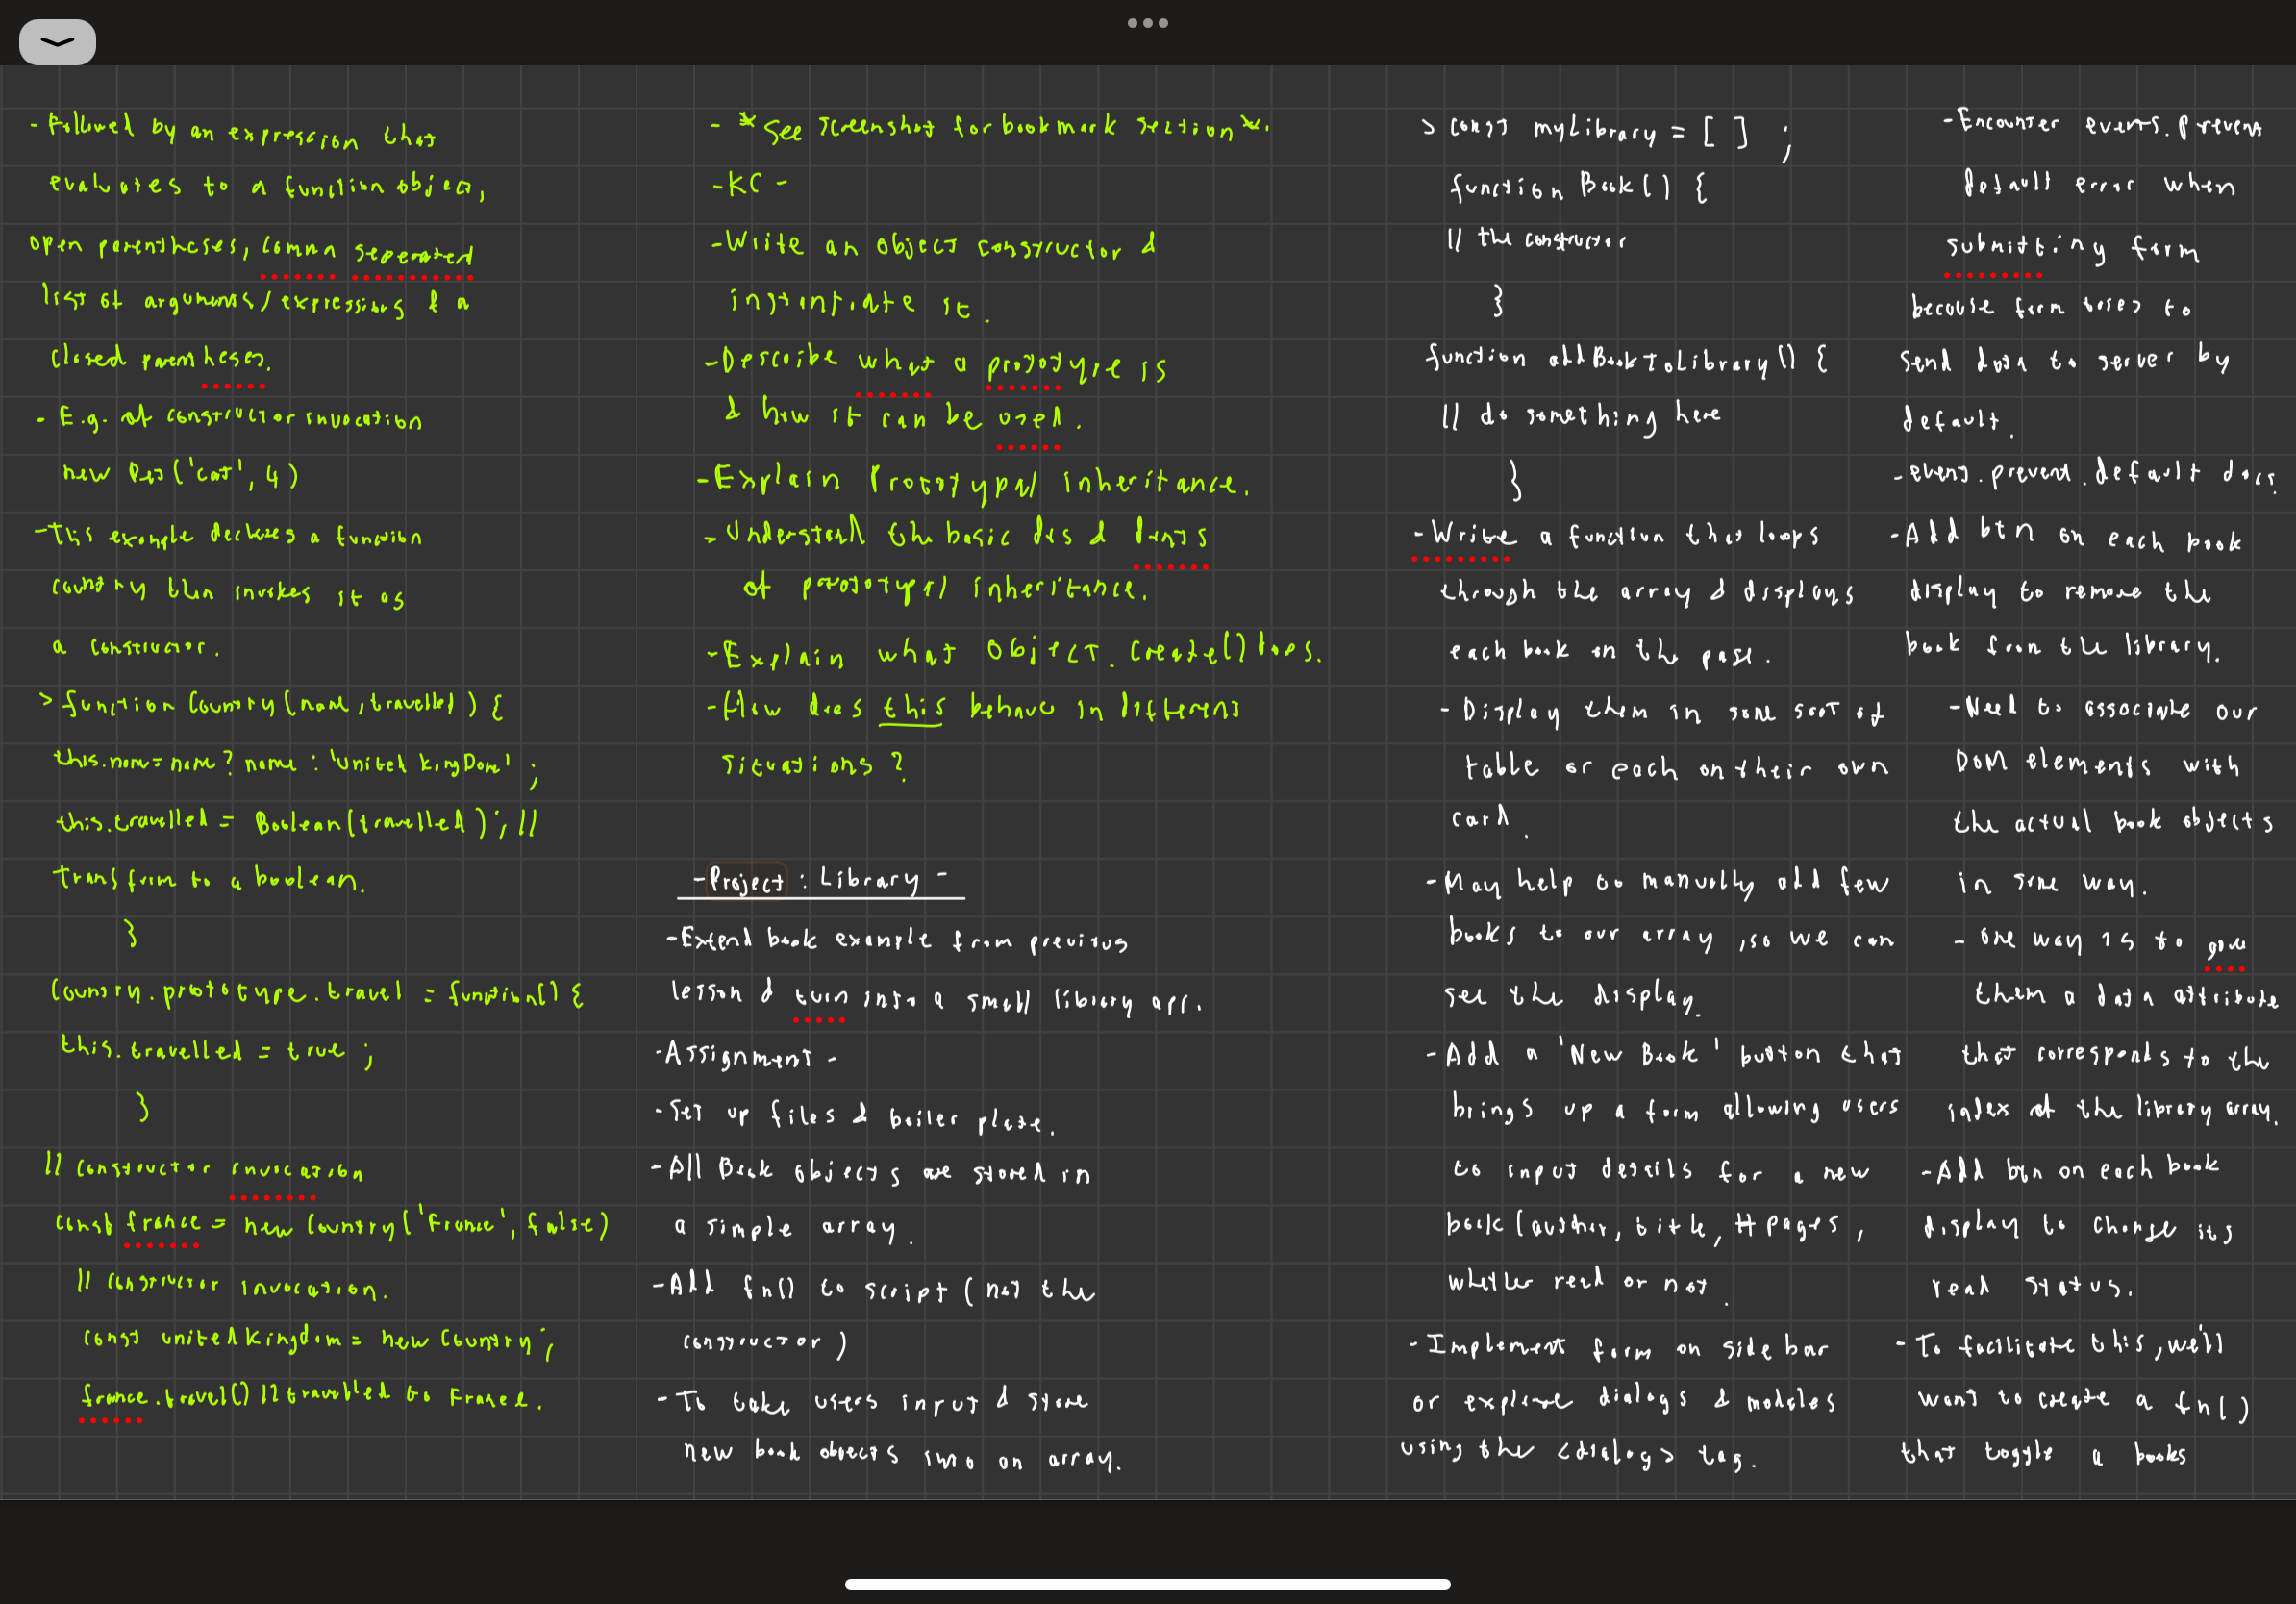 - Followed by an expression that
evaluates to a function object,
open parentheses, comma seperated
list of arguments/expressions & a
closed parentheses.
- E.g. of constructor invocation
new Pet('cat', 4)
- This example declares a function
country then invokes it as
a constructor.
> function Country(name, travelled) {
this.name = name ? name : 'United KingDom' ;
this.travelled = Boolean(travelled); //
transform to a boolean.
}
Country.prototype.travel = function() {
this.travelled = true ;
}
// constructor invocation
const france = new Country('France', false)
// constructor invocation.
const unitedkingdom = new Country;
france.travel() // travelled to France.
- * See screenshot for bookmark section *.
- KC -
- Write an object constructor &
instantiate it.
- Describe what a prototype is
& how it can be used.
- Explain Prototypal inheritance.
- Understand the basic dos & donts
of prototypal inheritance.
- Explain what Object.create() does.
- How does this behave in different
situations ?
- Project : Library -
- Extend book example from previous
lesson & turn into a small library app.
- Assignment -
- Set up files & boiler plate.
- All Book objects are stored in
a simple array.
- Add fn() to script (not the
constructor)
- To take users input & store
new book objects into an array.
> const myLibrary = [ ] ;
function Book() {
// the constructor
}
function addBookToLibrary() {
// do something here
}
- Write a function that loops
through the array & displays
each book on the page.
- Display them in some sort of
table or each on their own
card.
- May help to manually add few
books to our array, so we can
see the display.
- Add a 'New Book' button that
brings up a form allowing users
to input details for a new
book (author, title, # pages,
whether read or not.
- Implement form on side bar
or explore dialogs & modales
using the <dialog> tag.
- Encounter events.prevent
default error when
submitting form
because form tries to
send data to server by
default.
- event.prevent.default docs.
- Add btn on each book
display to remove the
book from the library.
- Need to associate our
DOM elements with
the actual book objects
in some way.
- One way is to give
them a data attribute
that corresponds to the
index of the library array.
- Add btn on each book
display to change its
read status.
- To facilitate this, we'll
want to create a fn()
that toggle a books